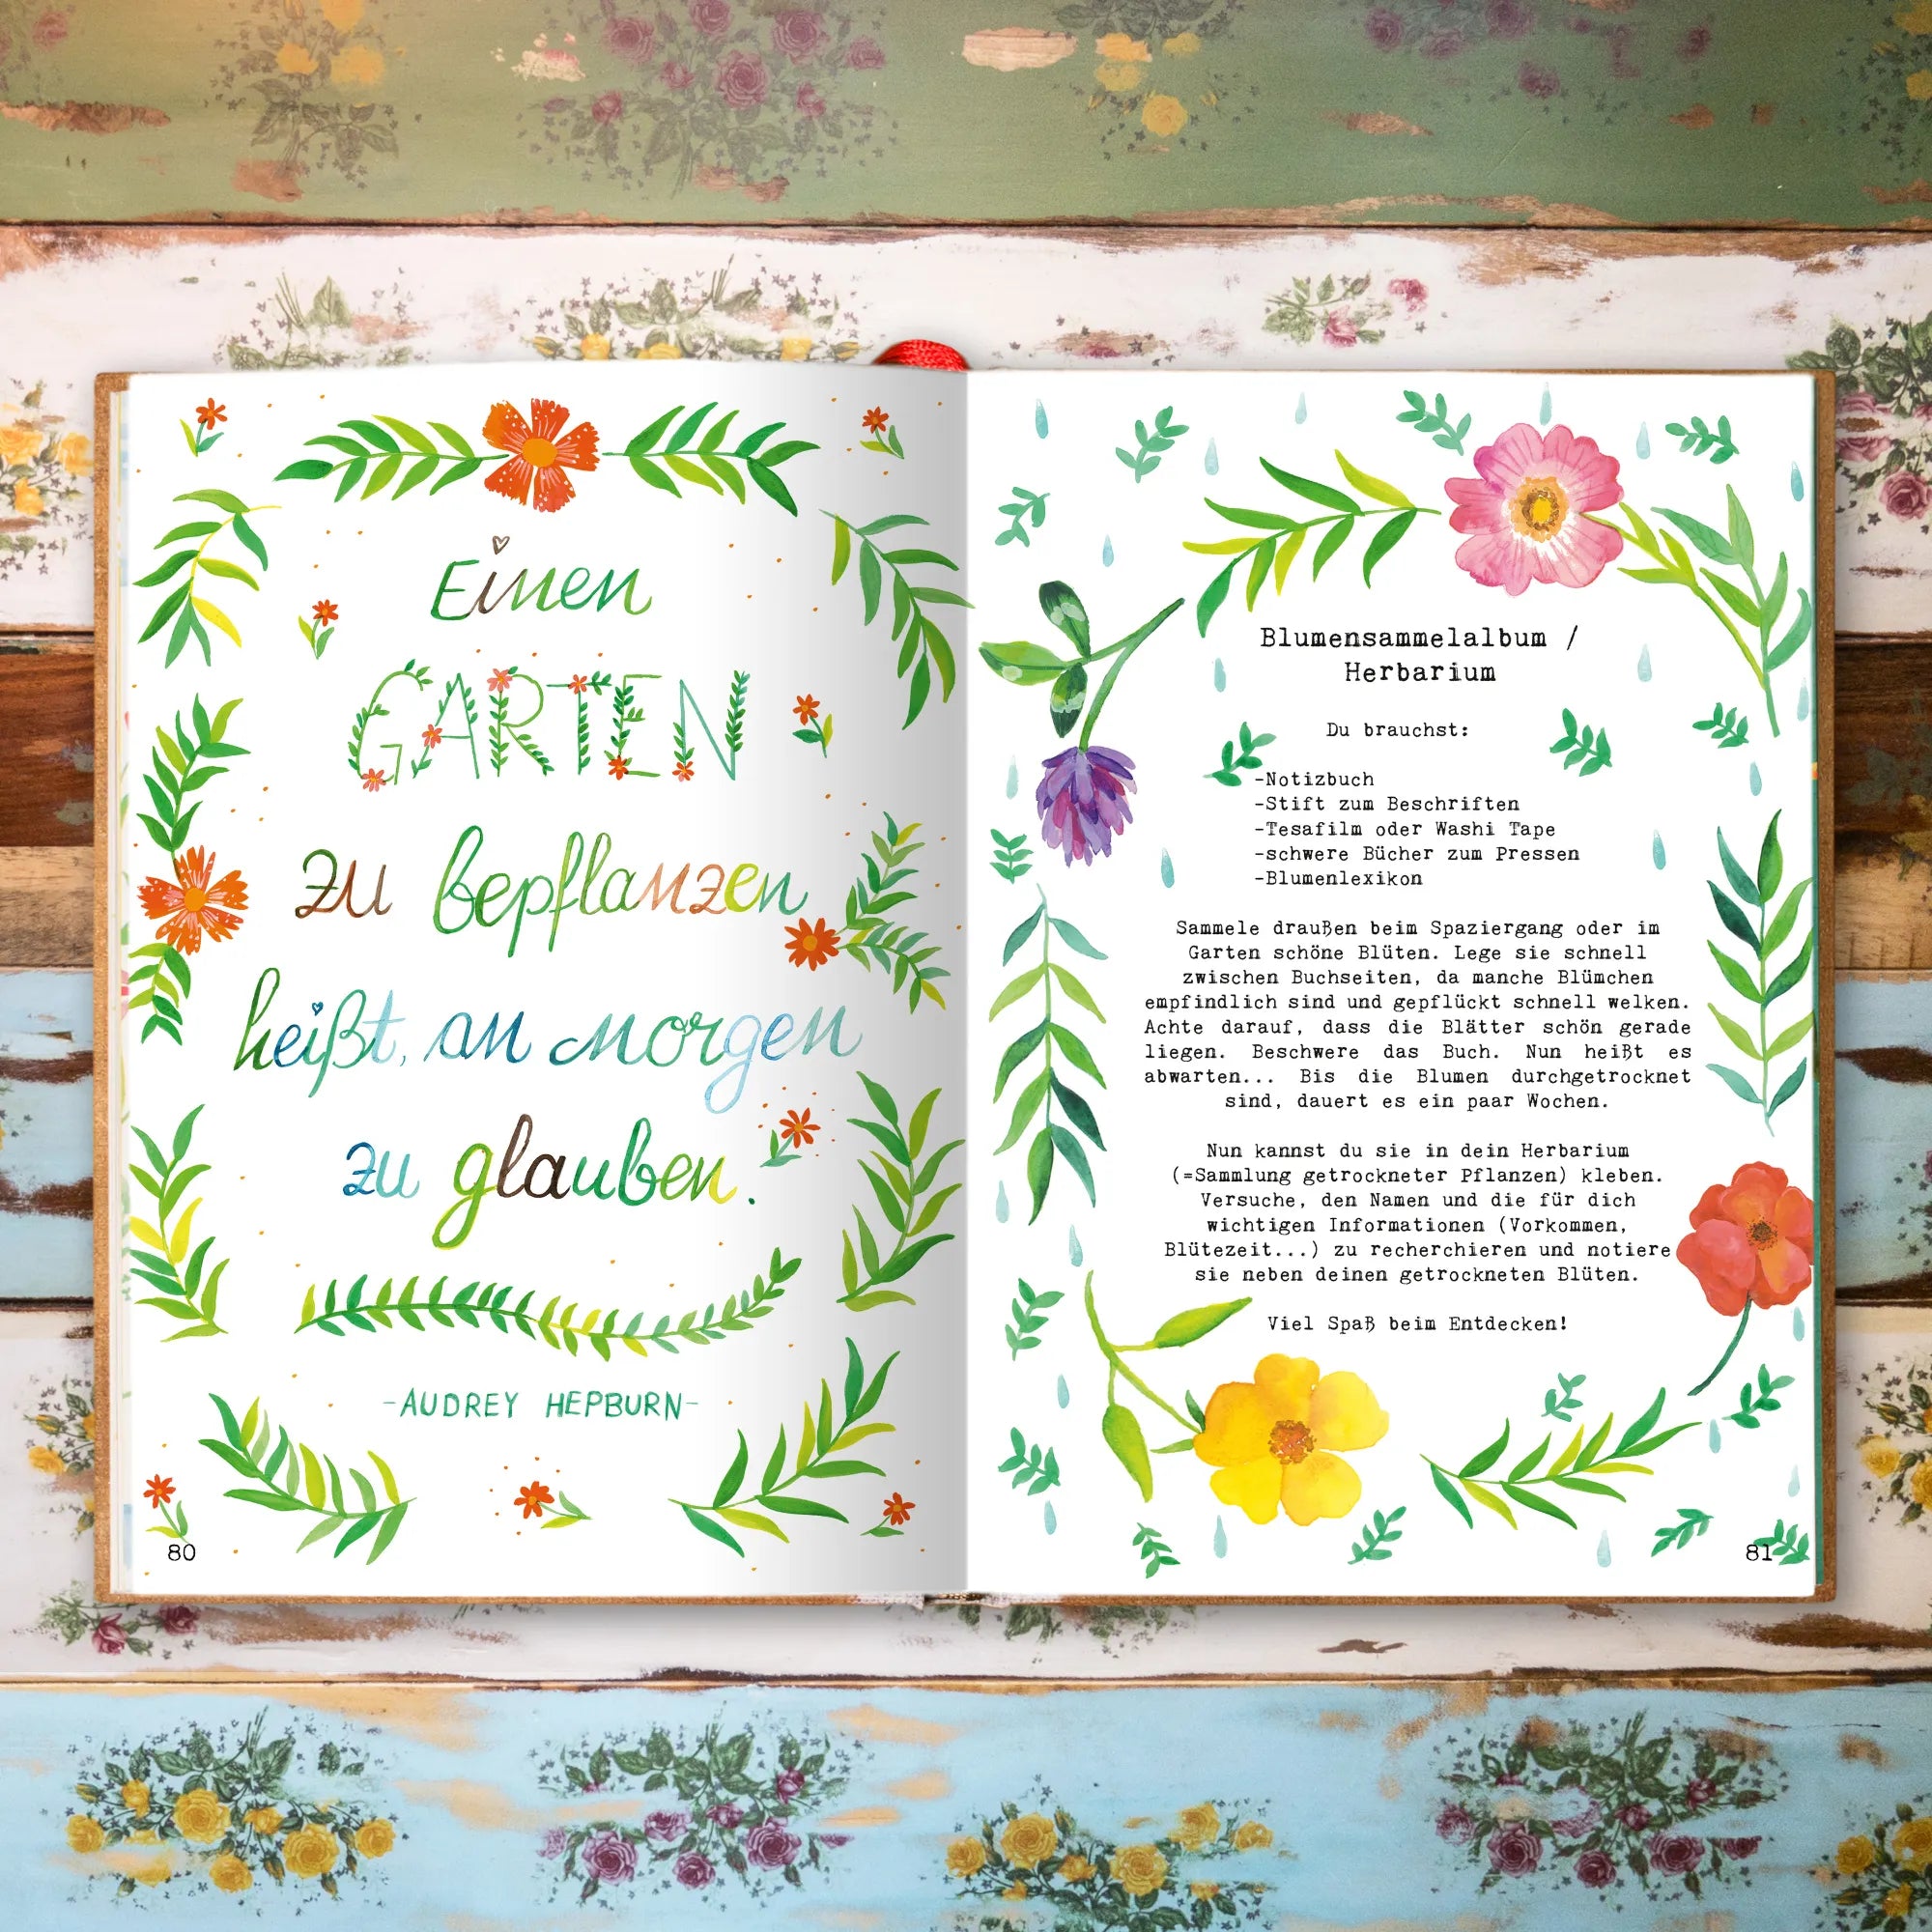 Einen
GARTEN
zu bepflanzen
heißt, an morgen
zu glauben.
-AUDREY HEPBURN-
80
Blumensammelalbum /
Herbarium
Du brauchst:
-Notizbuch
-Stift zum Beschriften
-Tesafilm oder Washi Tape
-schwere Bücher zum Pressen
-Blumenlexikon
Sammele draußen beim Spaziergang oder im
Garten schöne Blüten. Lege sie schnell
zwischen Buchseiten, da manche Blümchen
empfindlich sind und gepflückt schnell welken.
Achte darauf, dass die Blätter schön gerade
liegen. Beschwere das Buch. Nun heißt es
abwarten... Bis die Blumen durchgetrocknet
sind, dauert es ein paar Wochen.
Nun kannst du sie in dein Herbarium
(=Sammlung getrockneter Pflanzen) kleben.
Versuche, den Namen und die für dich
wichtigen Informationen (Vorkommen,
Blütezeit...) zu recherchieren und notiere
sie neben deinen getrockneten Blüten.
Viel Spaß beim Entdecken!
81